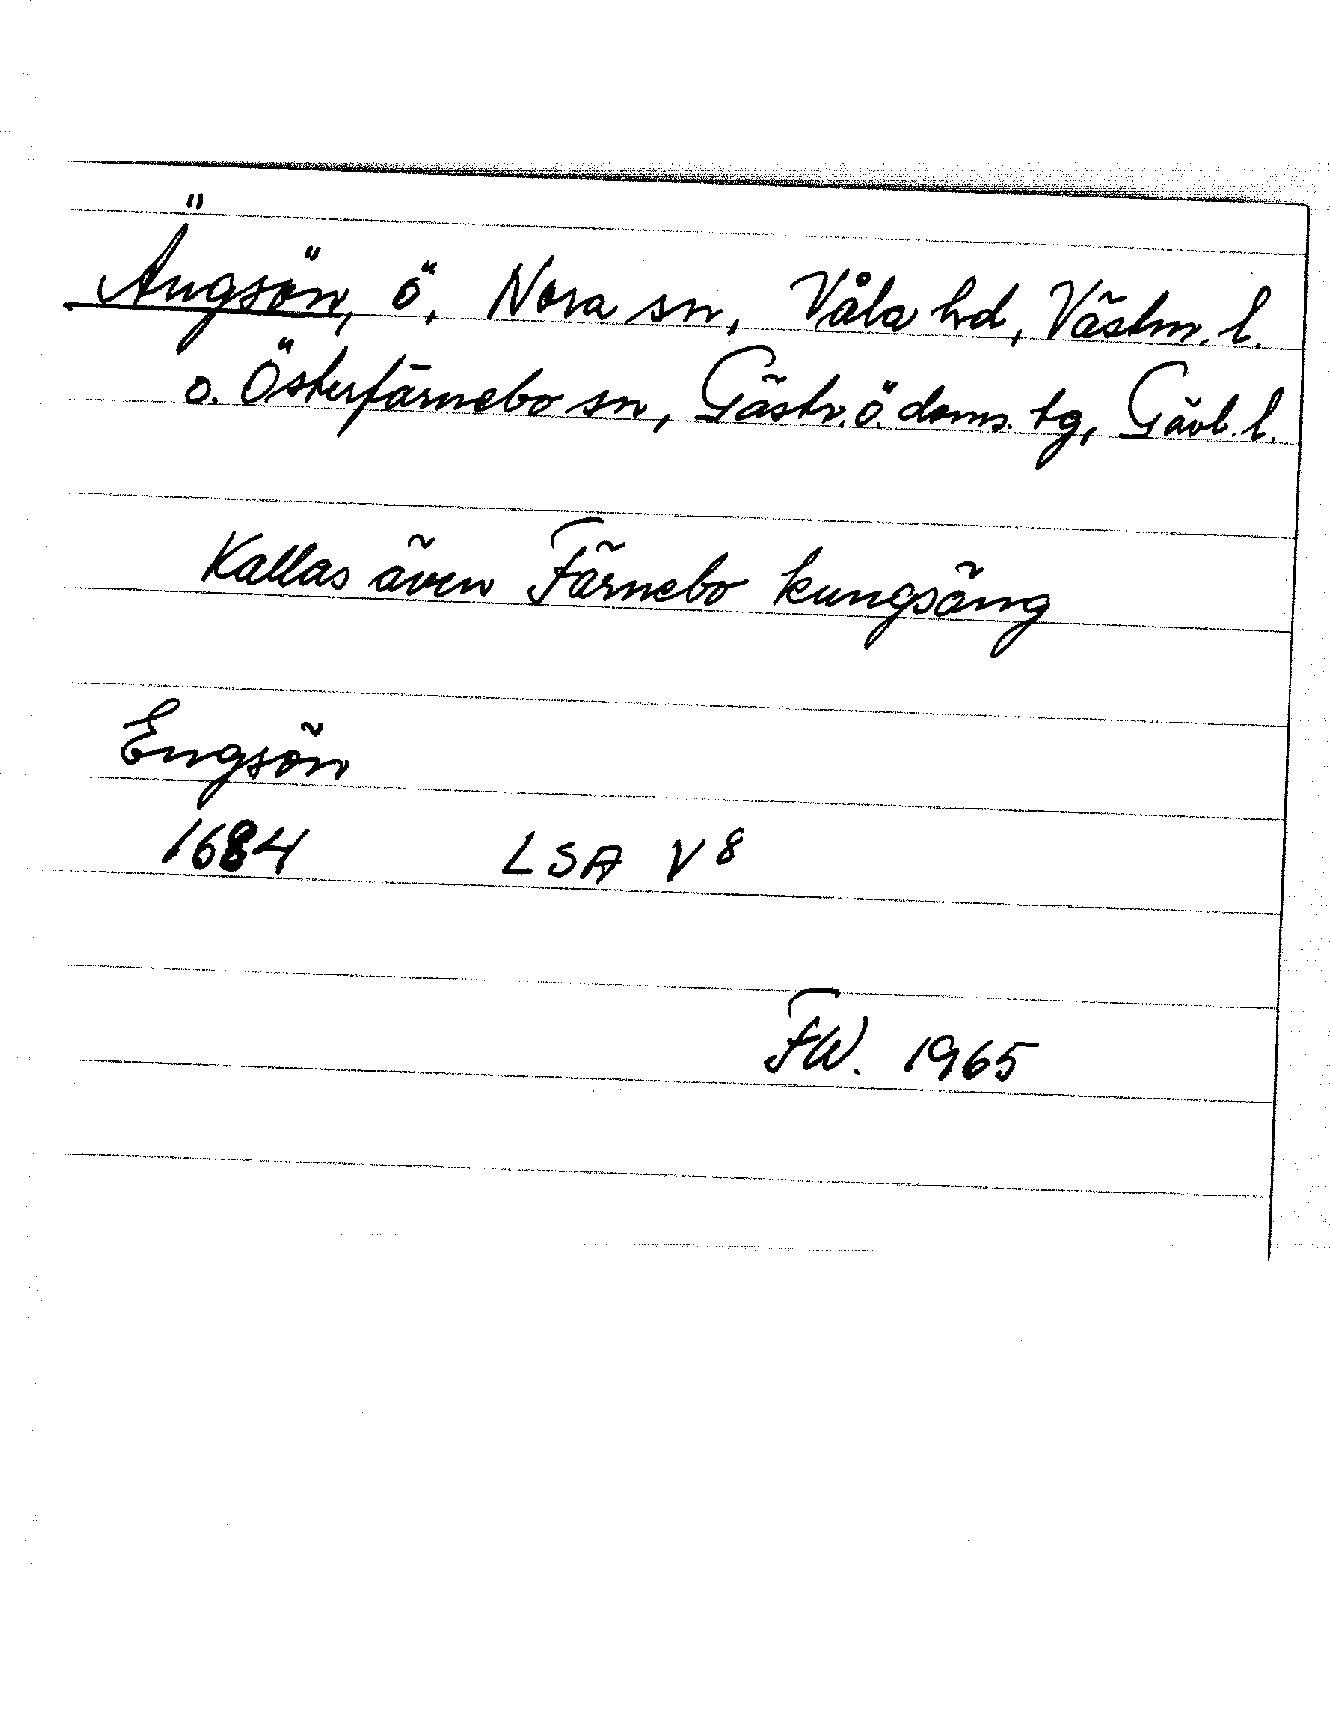 Ängsön, ö, Nora sn, Våla hd, Västm. l.
o. Österfärnebo sn, Gästr. ö. doms. tg, Gävl. l.
Kallas även Färnebo kungsäng
Engsön
1684 LSA V8
FW. 1965